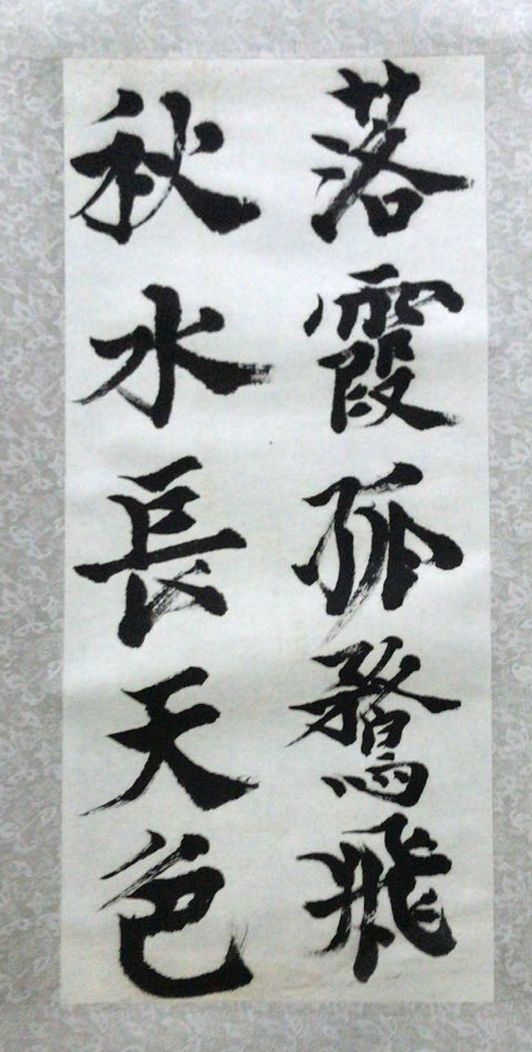 落霞孤鶩飛
秋水長天色